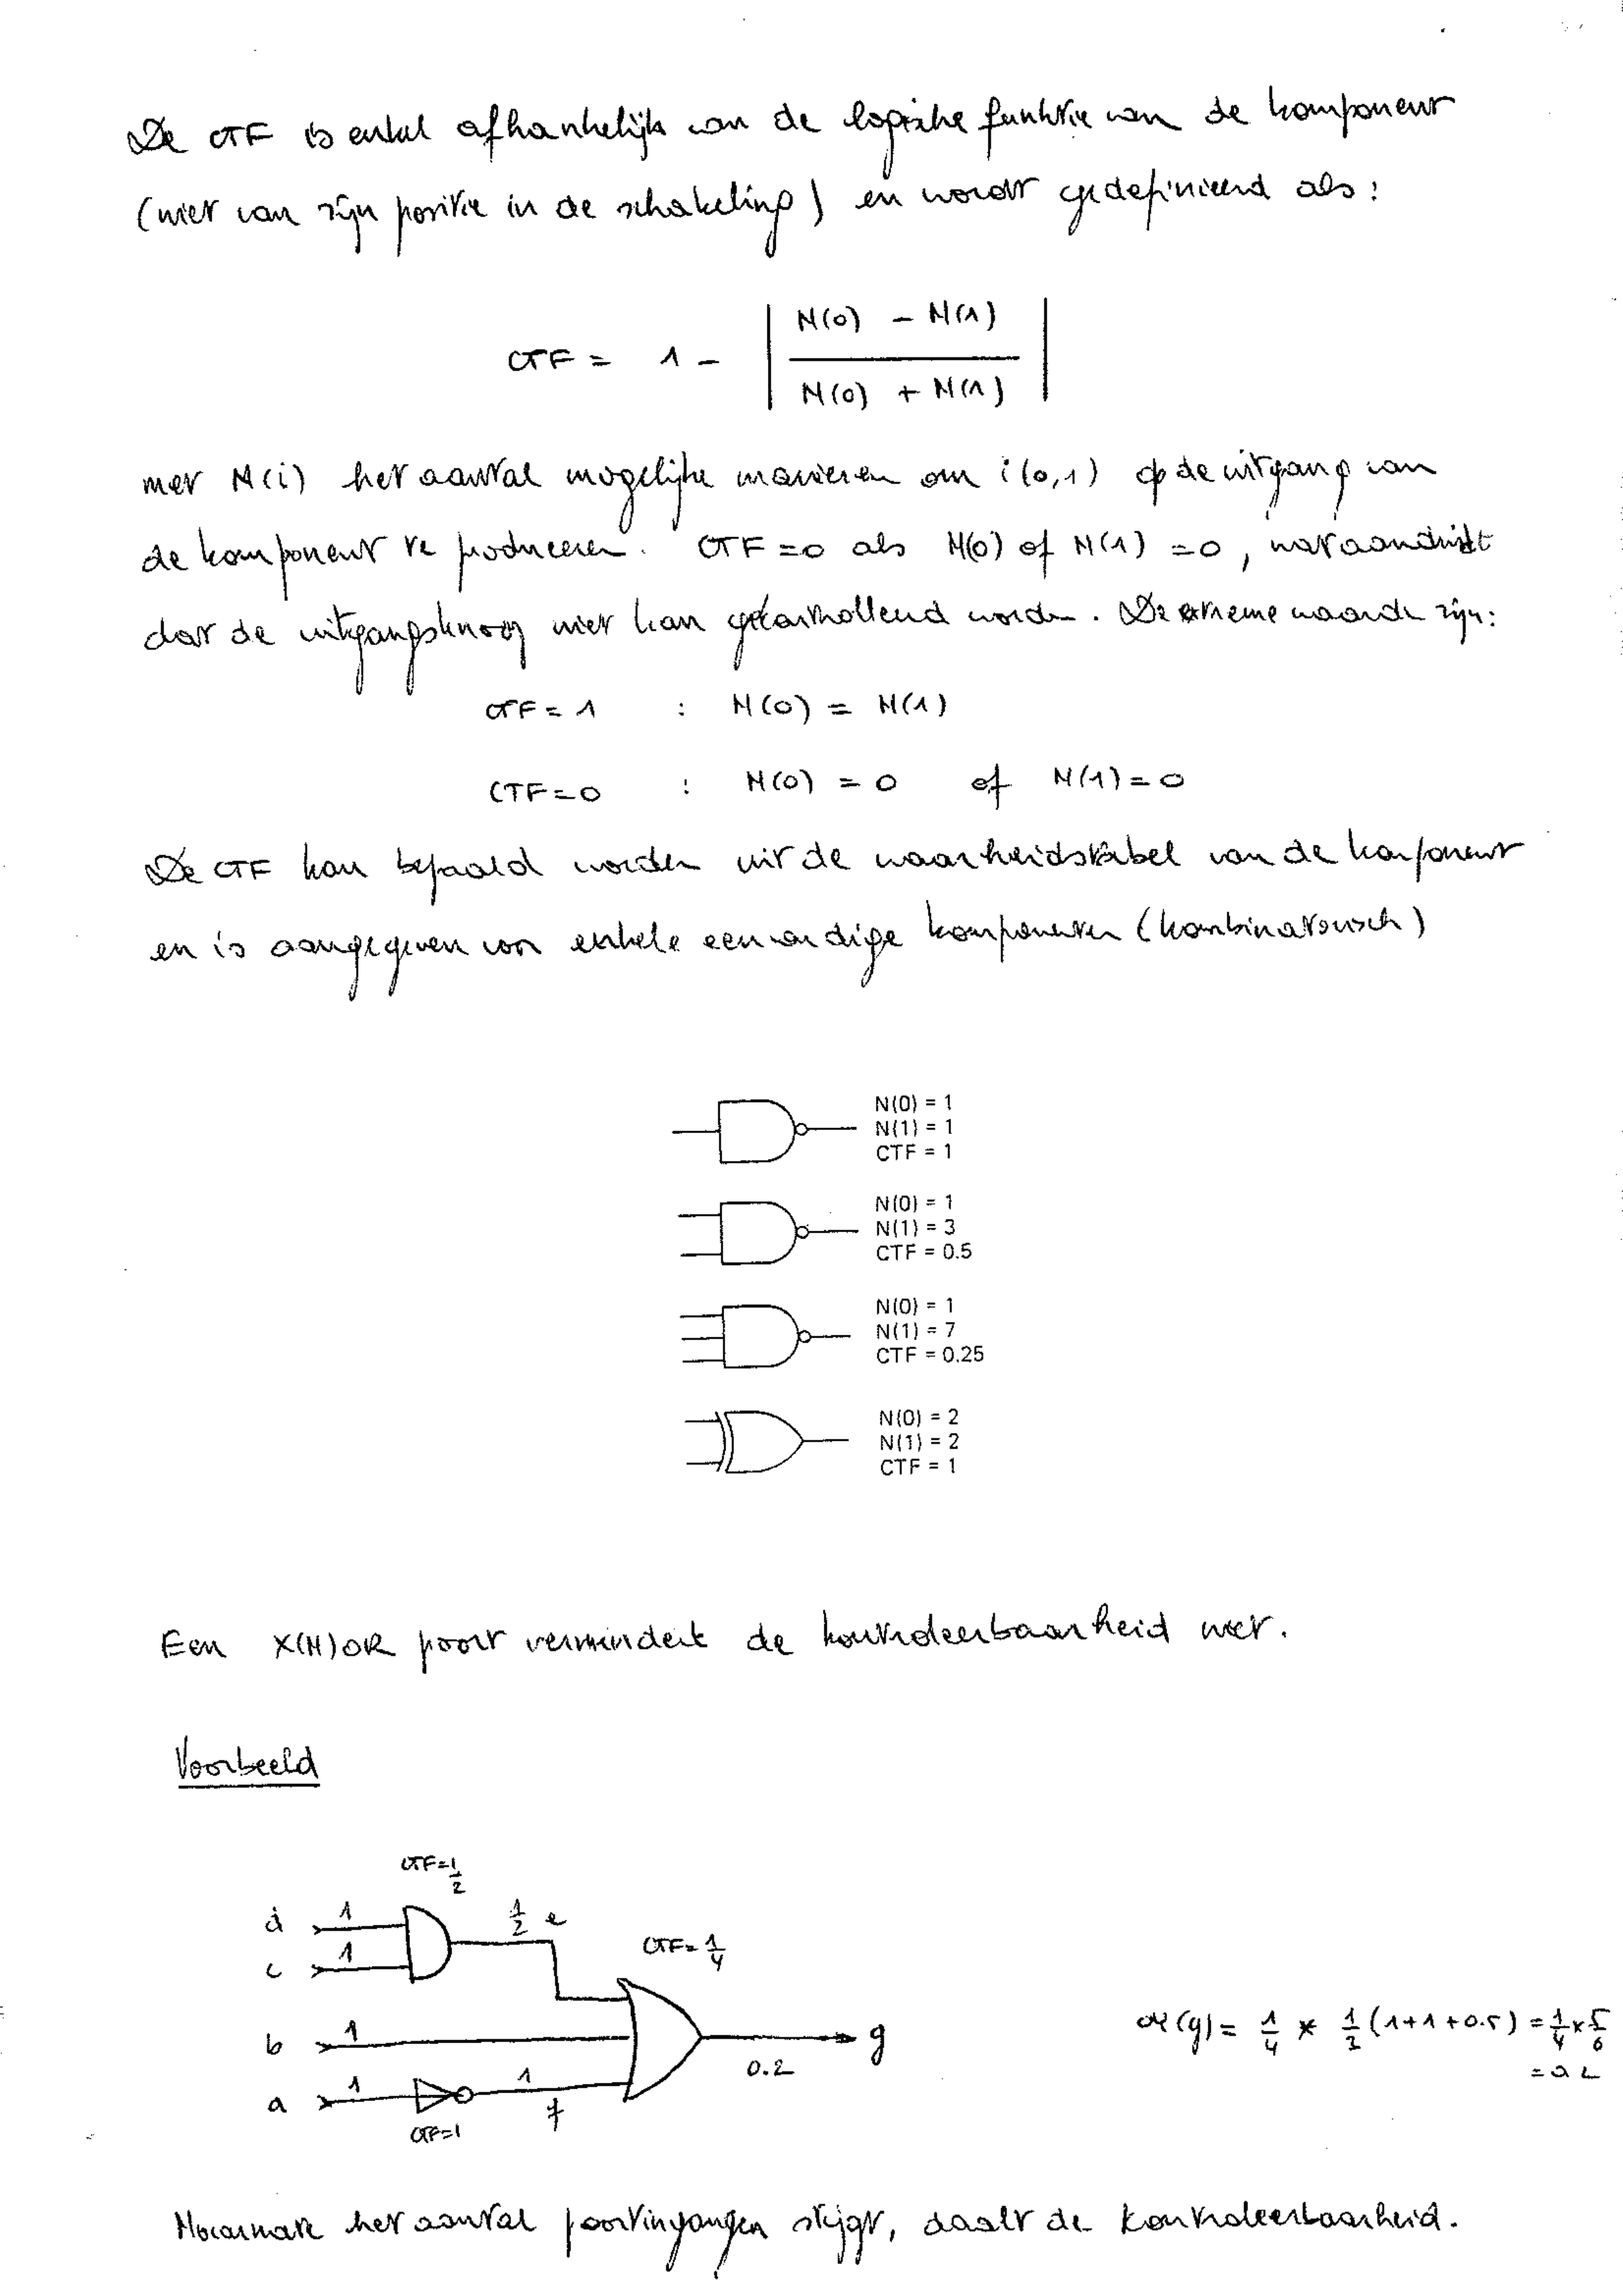 De CTF is enkel afhankelijk van de logische funktie van de komponent
(niet van zijn positie in de schakeling) en wordt gedefinieerd als:
CTF = 1 - | N(0) - N(1) / N(0) + N(1) |
met N(i) het aantal mogelijke manieren om i(0,1) op de uitgang van
de komponent te produceren. CTF=0 als N(0) of N(1) =0, wat aanduidt
dat de uitgangsknoop niet kan gekontroleerd worden. De extreme waarde zijn:
CTF = 1 : N(0) = N(1)
CTF=0 : N(0) = 0 of N(1) = 0
De CTF kan bepaald worden uit de waarheidstabel van de komponent
en is aangegeven voor enkele eenvoudige komponenten (kombinatorisch)
N(0) = 1
N(1) = 1
CTF = 1
N(0) = 1
N(1) = 3
CTF = 0.5
N(0) = 1
N(1) = 7
CTF = 0.25
N(0) = 2
N(1) = 2
CTF = 1
Een X(N)OR poort vermindert de kontroleerbaarheid niet.
Voorbeeld
CTF=1/2
d 1
1/2 e
c 1
CTF=1/4
b 1
g
0.2
CY(g) = 1/4 * 1/3 (1+1+0.5) = 1/4 x 5/6
= 0.2
a 1
1
f
CTF=1
Naarmate het aantal poortingangen stijgt, daalt de kontroleerbaarheid.